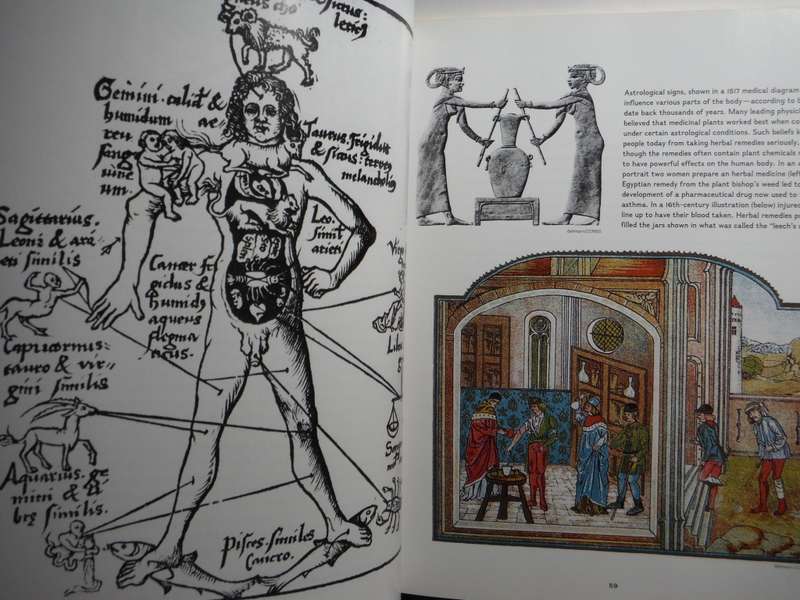 Gemini · calid &
humidum
ae-
reu
sang
uine
um.
Taurus · frigidus
& siccus
melancholiq
Leo.
simil
arieti
Sagittarius.
Leoni & ari
eti similis
Cancer fri
gidus &
humid9
aqueus
flegma
ticus.
Capricornus ·
tauro & vir-
gini similis
Aquarius · ge
mini & li
brę similis.
Pisces · similes
Cancro.
Astrological signs, shown in a 1517 medical diagram
influence various parts of the body—according to
date back thousands of years. Many leading physic
believed that medicinal plants worked best when co
under certain astrological conditions. Such beliefs
people today from taking herbal remedies seriously.
though the remedies often contain plant chemicals
to have powerful effects on the human body. In an
portrait two women prepare an herbal medicine (lef
Egyptian remedy from the plant bishop's weed led to
development of a pharmaceutical drug now used to
asthma. In a 16th-century illustration (below) injured
line up to have their blood taken. Herbal remedies
filled the jars shown in what was called the "leech's
59